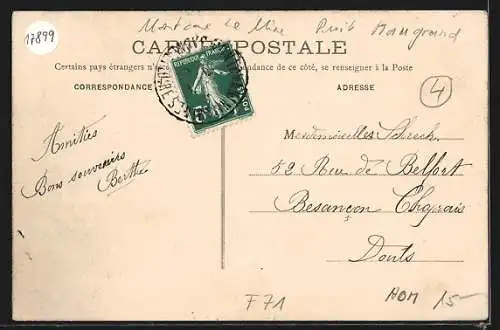 17899
Montceau Le Mine Puit Maugrand
CARTE POSTALE
Certains pays étrangers n' dance de ce côté, se renseigner à la Poste
CORRESPONDANCE
ADRESSE
4
REPUBLIQUE FRANÇAISE
5
POSTES
Amitiés
Bons souvenirs
Berthe
Mesdemoiselles Schreck
52 Rue de Belfort
Besançon Chaprais
Doubs
F71
15-